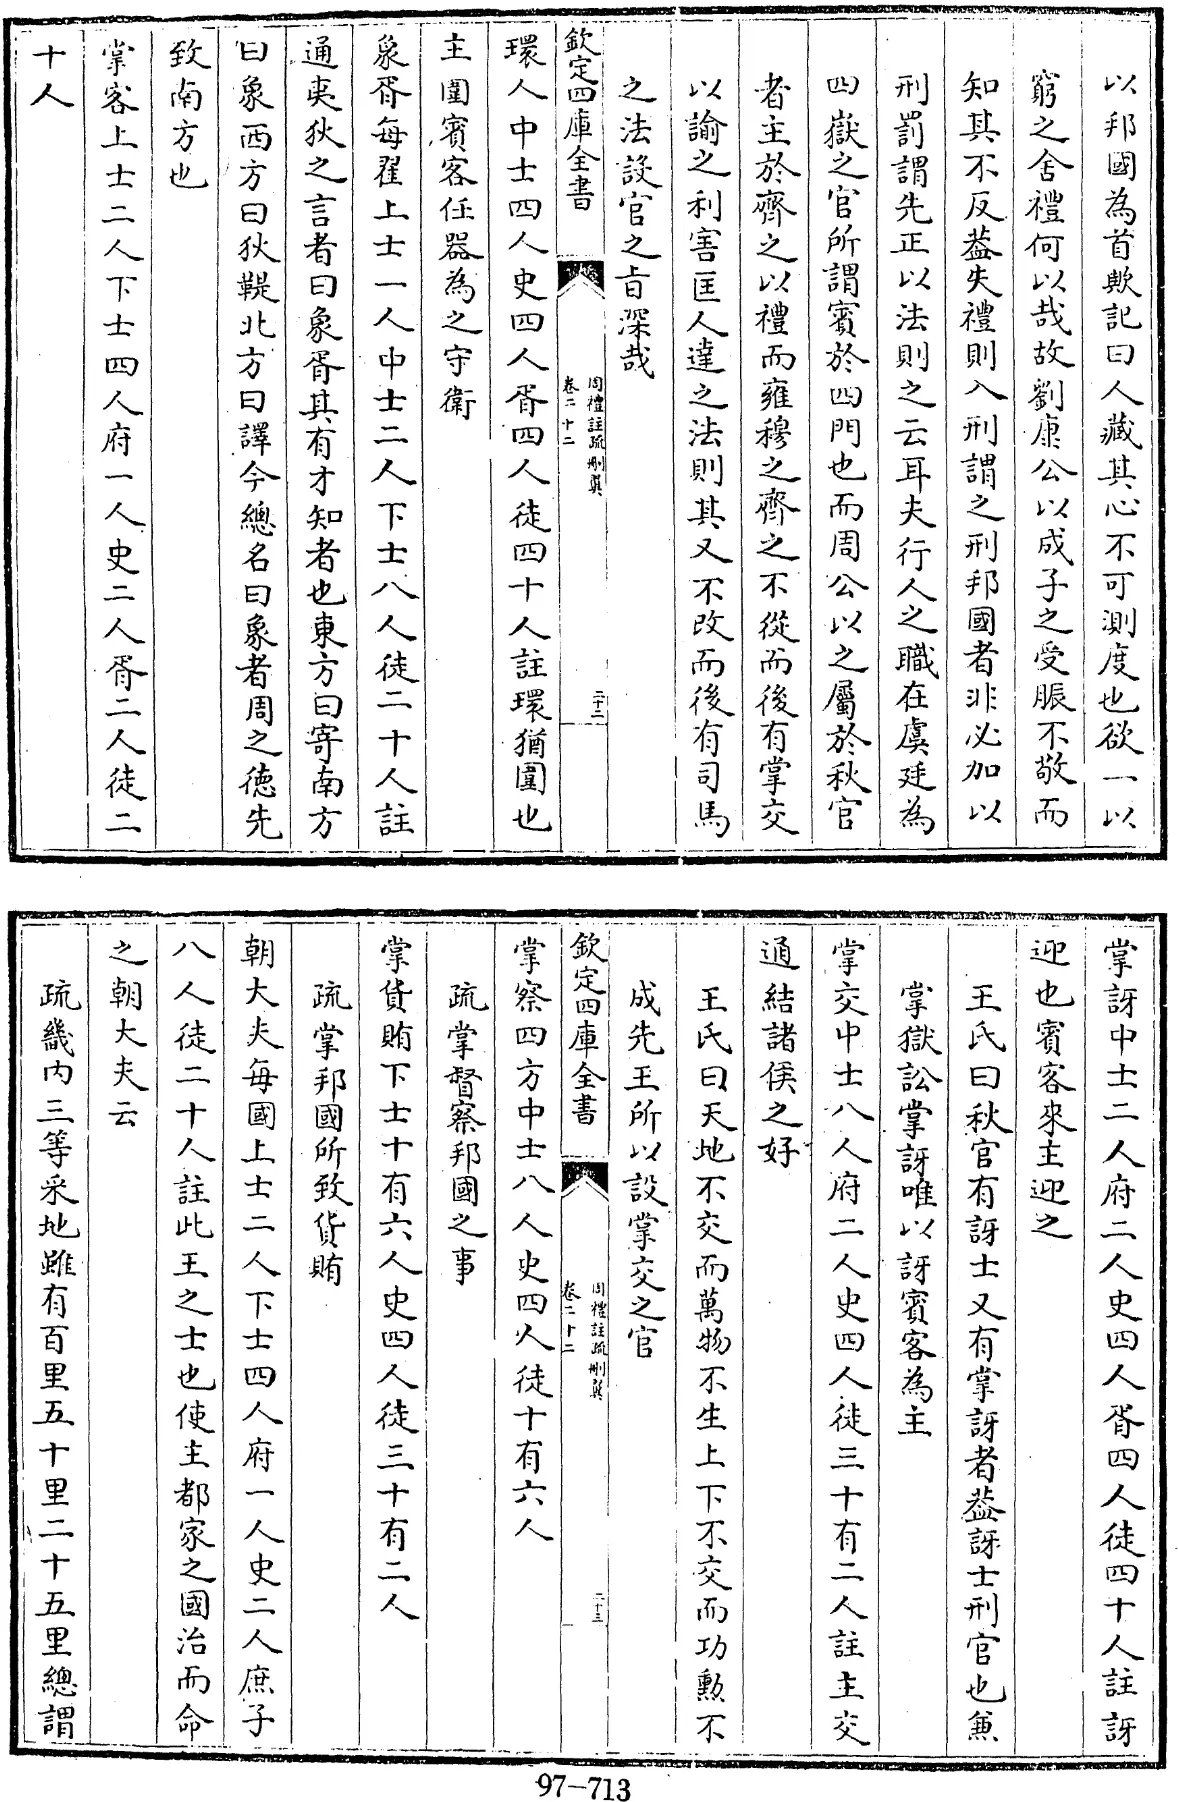 以邦國為首歟記曰人藏其心不可測度也欲一以
窮之舍禮何以哉故劉康公以成子之受脤不敬而
知其不反葢失禮則入刑謂之刑邦國者非必加以
刑罰謂先正以法則之云耳夫行人之職在虞廷為
四嶽之官所謂賓於四門也而周公以之屬於秋官
者主於齊之以禮而雍穆之齊之不從而後有掌交
以諭之利害匡人達之法則其又不改而後有司馬
之法設官之㫖深哉
欽定四庫全書
周禮註疏刪翼
卷二十二
二十二
環人中士四人史四人胥四人徒四十人註環猶圍也
主圍賓客任器為之守衛
象胥每翟上士一人中士二人下士八人徒二十人註
通夷狄之言者曰象胥其有才知者也東方曰寄南方
曰象西方曰狄鞮北方曰譯今總名曰象者周之德先
致南方也
掌客上士二人下士四人府一人史二人胥二人徒二
十人
掌訝中士二人府二人史四人胥四人徒四十人註訝
迎也賓客來主迎之
王氏曰秋官有訝士又有掌訝者葢訝士刑官也兼
掌獄訟掌訝唯以訝賓客為主
掌交中士八人府二人史四人徒三十有二人註主交
通結諸侯之好
王氏曰天地不交而萬物不生上下不交而功勲不
成先王所以設掌交之官
欽定四庫全書
周禮註疏刪翼
卷二十二
二十三
掌察四方中士八人史四人徒十有六人
疏掌督察邦國之事
掌貨賄下士十有六人史四人徒三十有二人
疏掌邦國所致貨賄
朝大夫每國上士二人下士四人府一人史二人庶子
八人徒二十人註此王之士也使主都家之國治而命
之朝大夫云
疏畿内三等采地雖有百里五十里二十五里總謂
97-713